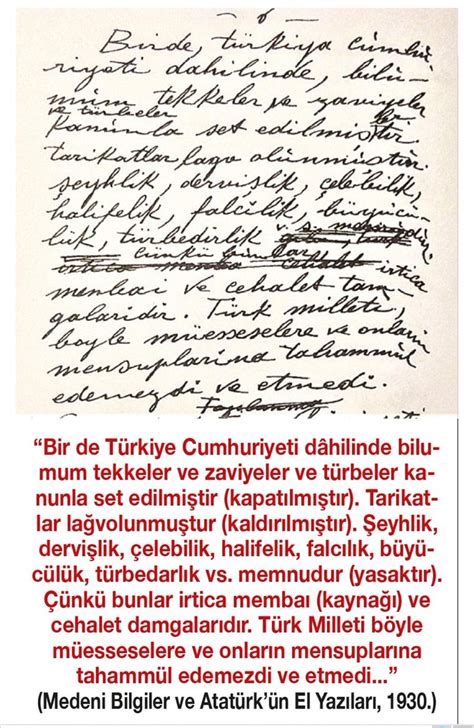 6
Birde, türkiye cümhu
riyeti dahilinde, bilu-
mum tekkeler ve zaviyeler
ve türbeler
kanunla set edilmiştir
tarikatlar lagv olunmuştur.
şeyhlik, dervişlik, çelebilik,
halifelik, falcilik, büyücü-
lük, türbedarlik v.s. memnudur.
çünkü bunlar irtica
menbai ve cehalet dam-
galaridir. Türk milleti,
boyle müesseselere ve onlarin
mensuplarina tahammül
edemezdi ve etmedi.
“Bir de Türkiye Cumhuriyeti dâhilinde bilu-
mum tekkeler ve zaviyeler ve türbeler ka-
nunla set edilmiştir (kapatılmıştır). Tarikat-
lar lağvolunmuştur (kaldırılmıştır). Şeyhlik,
dervişlik, çelebilik, halifelik, falcılık, büyü-
cülük, türbedarlık vs. memnudur (yasaktır).
Çünkü bunlar irtica membaı (kaynağı) ve
cehalet damgalarıdır. Türk Milleti böyle
müesseselere ve onların mensuplarına
tahammül edemezdi ve etmedi...”
(Medeni Bilgiler ve Atatürk’ün El Yazıları, 1930.)